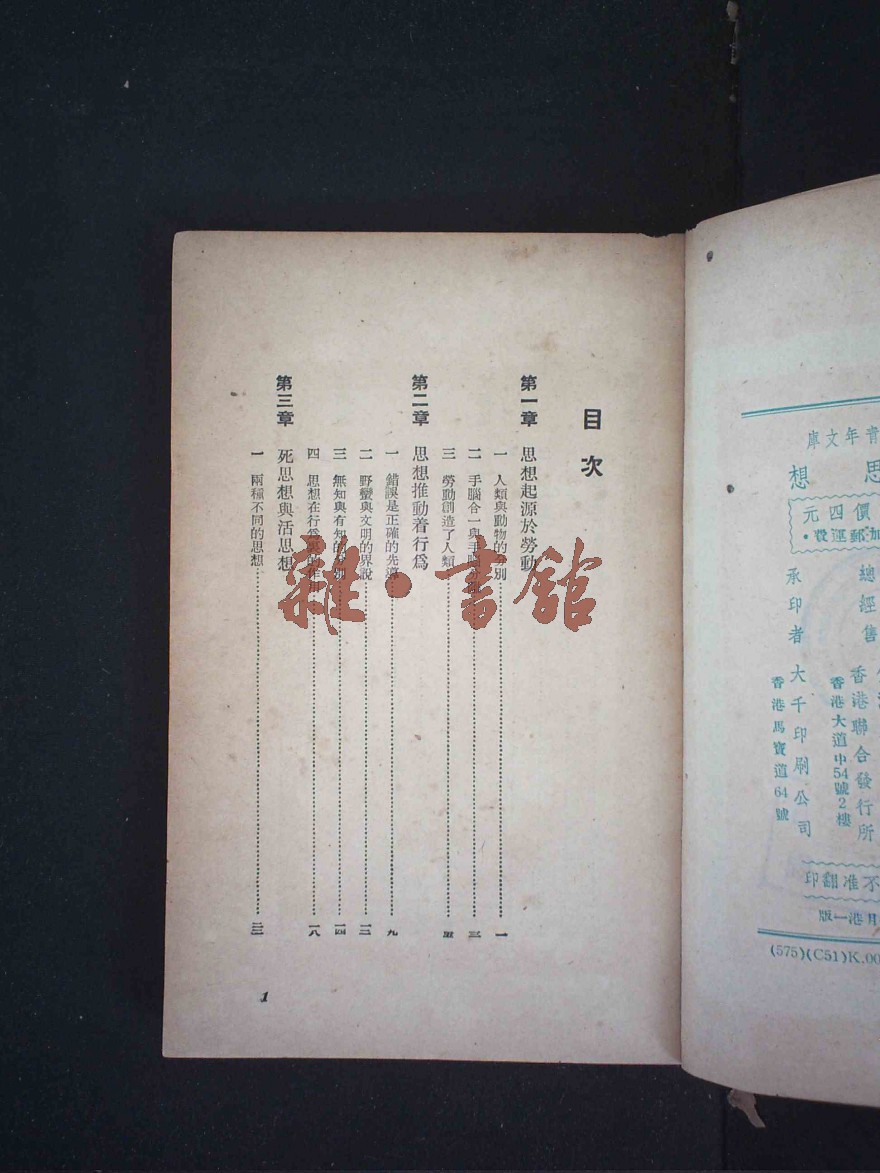 青年文庫
思想
價四元
加郵運費・
總經售 香港聯合發行所
香港大道中54號2樓
承印者 大千印刷公司
香港馬寶道64號
不准翻印
月港一版
(575)(C51)K.00
目次
第一章 思想起源於勞動
一 人類與動物的分別……一
二 手腦合一與手腦……三
三 勞動創造了人類……五
第二章 思想推動着行爲
一 錯誤是正確的先導……九
二 野蠻與文明的界說……
三 無知與有知的分別……一四
四 思想在行爲裏的作用……一八
第三章 死思想與活思想
一 兩種不同的思想……
1
雜・書館